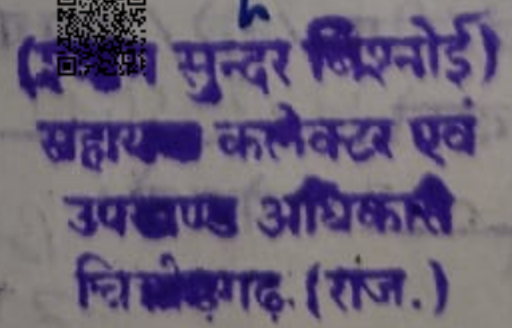 सुन्दर बिश्नोई)
सहायक कलेक्टर एवं
उपखण्ड अधिकारी
चित्तोड़गढ़ (राज.)